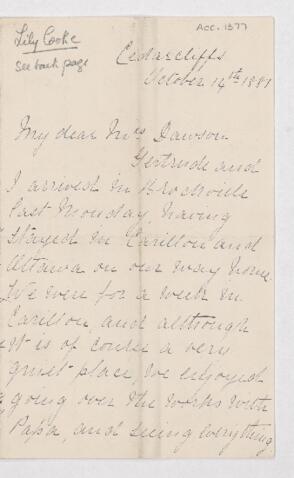 Lily Cooke
see back page
Acc. 1377
Cedarcliffs
October 14th 1881
My dear Mrs Dawson
Gertrude and
I arrived in Brockville
last Monday, having
stayed in Carillon and
Ottawa on our way home.
We were for a week in
Carillon, and although
it is of course a very
quiet place, we enjoyed
going over the works with
Papa, and seeing everything